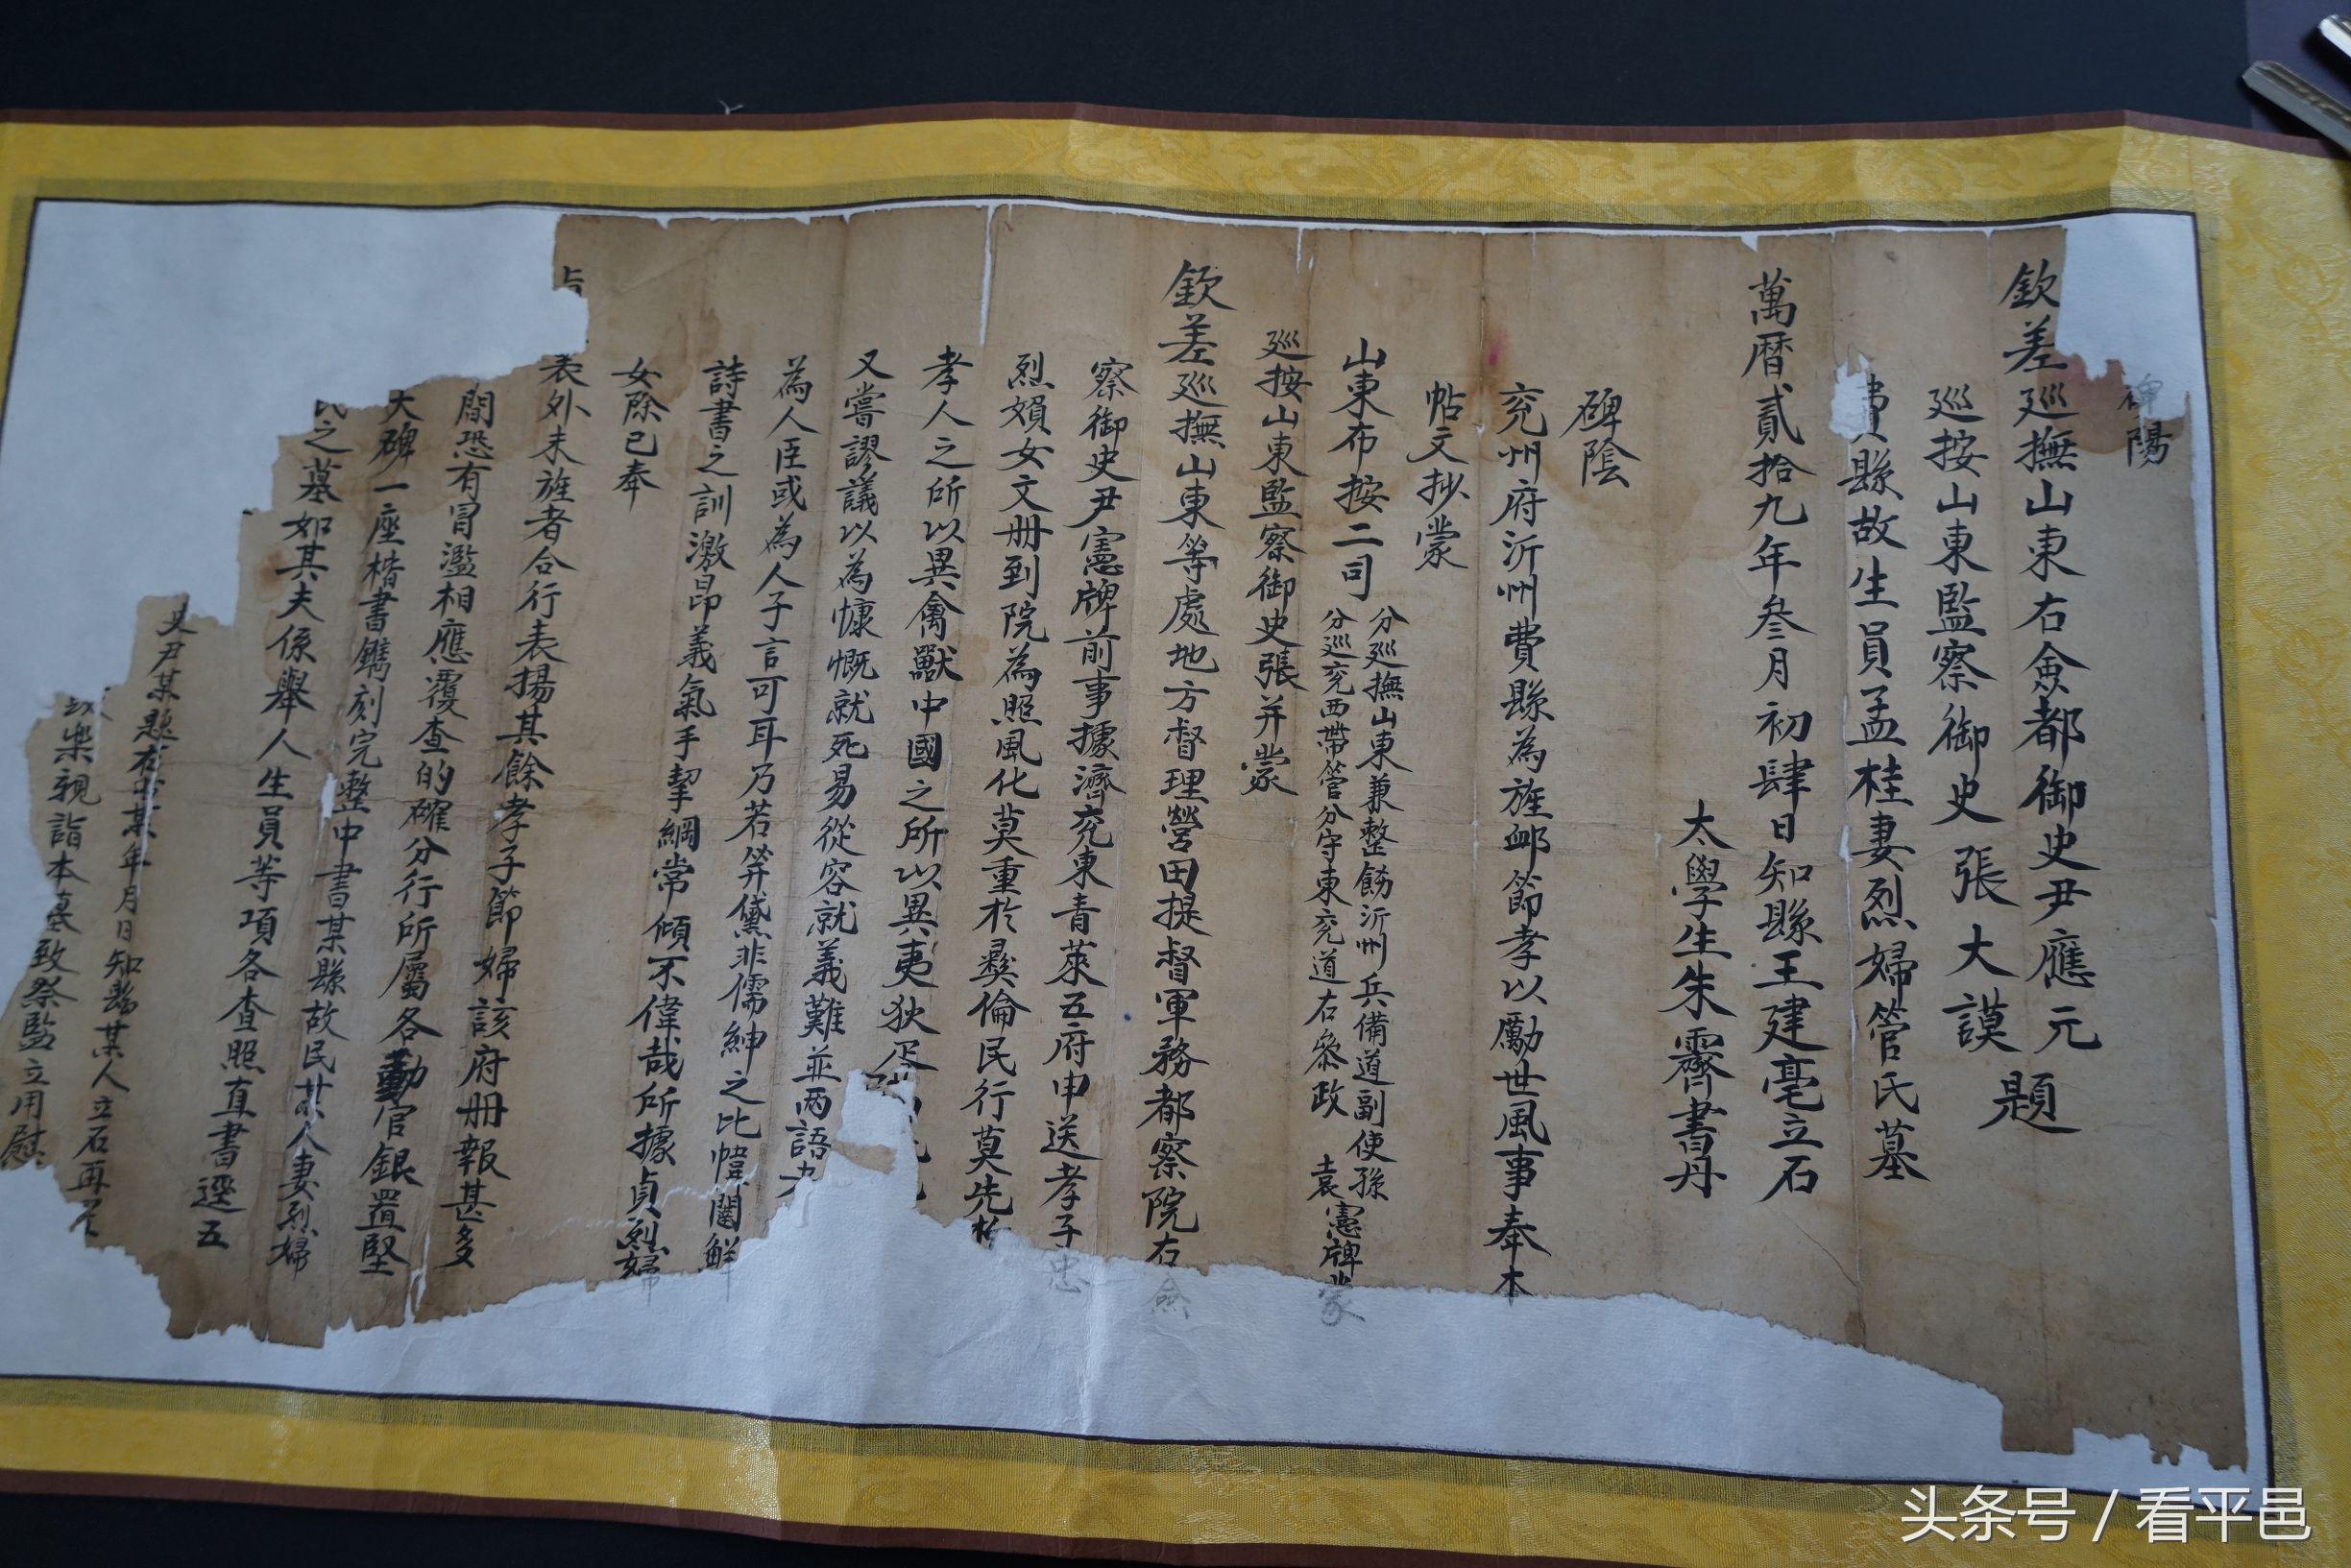 碑陽
欽差巡撫山東右僉都御史尹應元
巡按山東監察御史張大謨 題
費縣故生員孟桂妻烈婦管氏墓
萬曆貳拾九年叁月初肆日知縣王建亳立石
太學生朱霽書丹
碑陰
兖州府沂州費縣為旌卹節孝以勵世風事奉本
帖文抄蒙
山東布按二司
分巡撫山東兼整飭沂州兵備道副使孫
分巡兖西帶管分守東兖道右叅政 袁憲牌蒙
巡按山東監察御史張并蒙
欽差巡撫山東等處地方督理營田提督軍務都察院右僉
察御史尹憲牌前事據濟兖東青萊五府申送孝子忠
烈媍女文册到院為照風化莫重於彝倫民行莫先
孝人之所以異禽獸中國之所以異夷狄
又嘗謬議以為慷慨就死易從容就義難並兩語
為人臣或為人子言可耳乃若笄黛非儒紳之比幃闥鮮
詩書之訓激昂義氣手挈綱常傾不偉哉所據貞烈婦
女除已奉
表外未旌者合行表揚其餘孝子節婦該府册報甚多
間恐有冒濫相應覆查的確分行所屬各動官銀置堅
大碑一座楷書鐫刻完整中書某縣故民某人妻烈婦
氏之墓如其夫係舉人生員等項各查照直書遝五
史尹某題右書某年月日知縣某人立石再
樂親詣本墓致祭監立用慰
头条号 / 看平邑